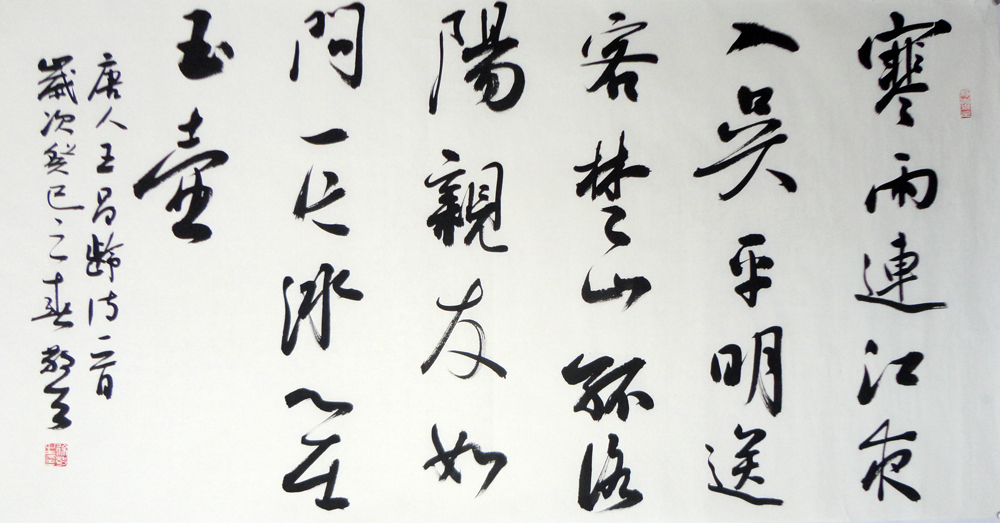 寒雨連江夜
入吳平明送
客楚山孤洛
陽親友如
問一片冰心在
玉壺
唐人王昌齡詩一首
歲次癸巳之春